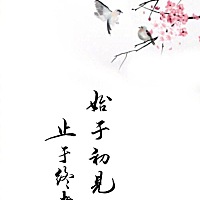 始于初见
止于终